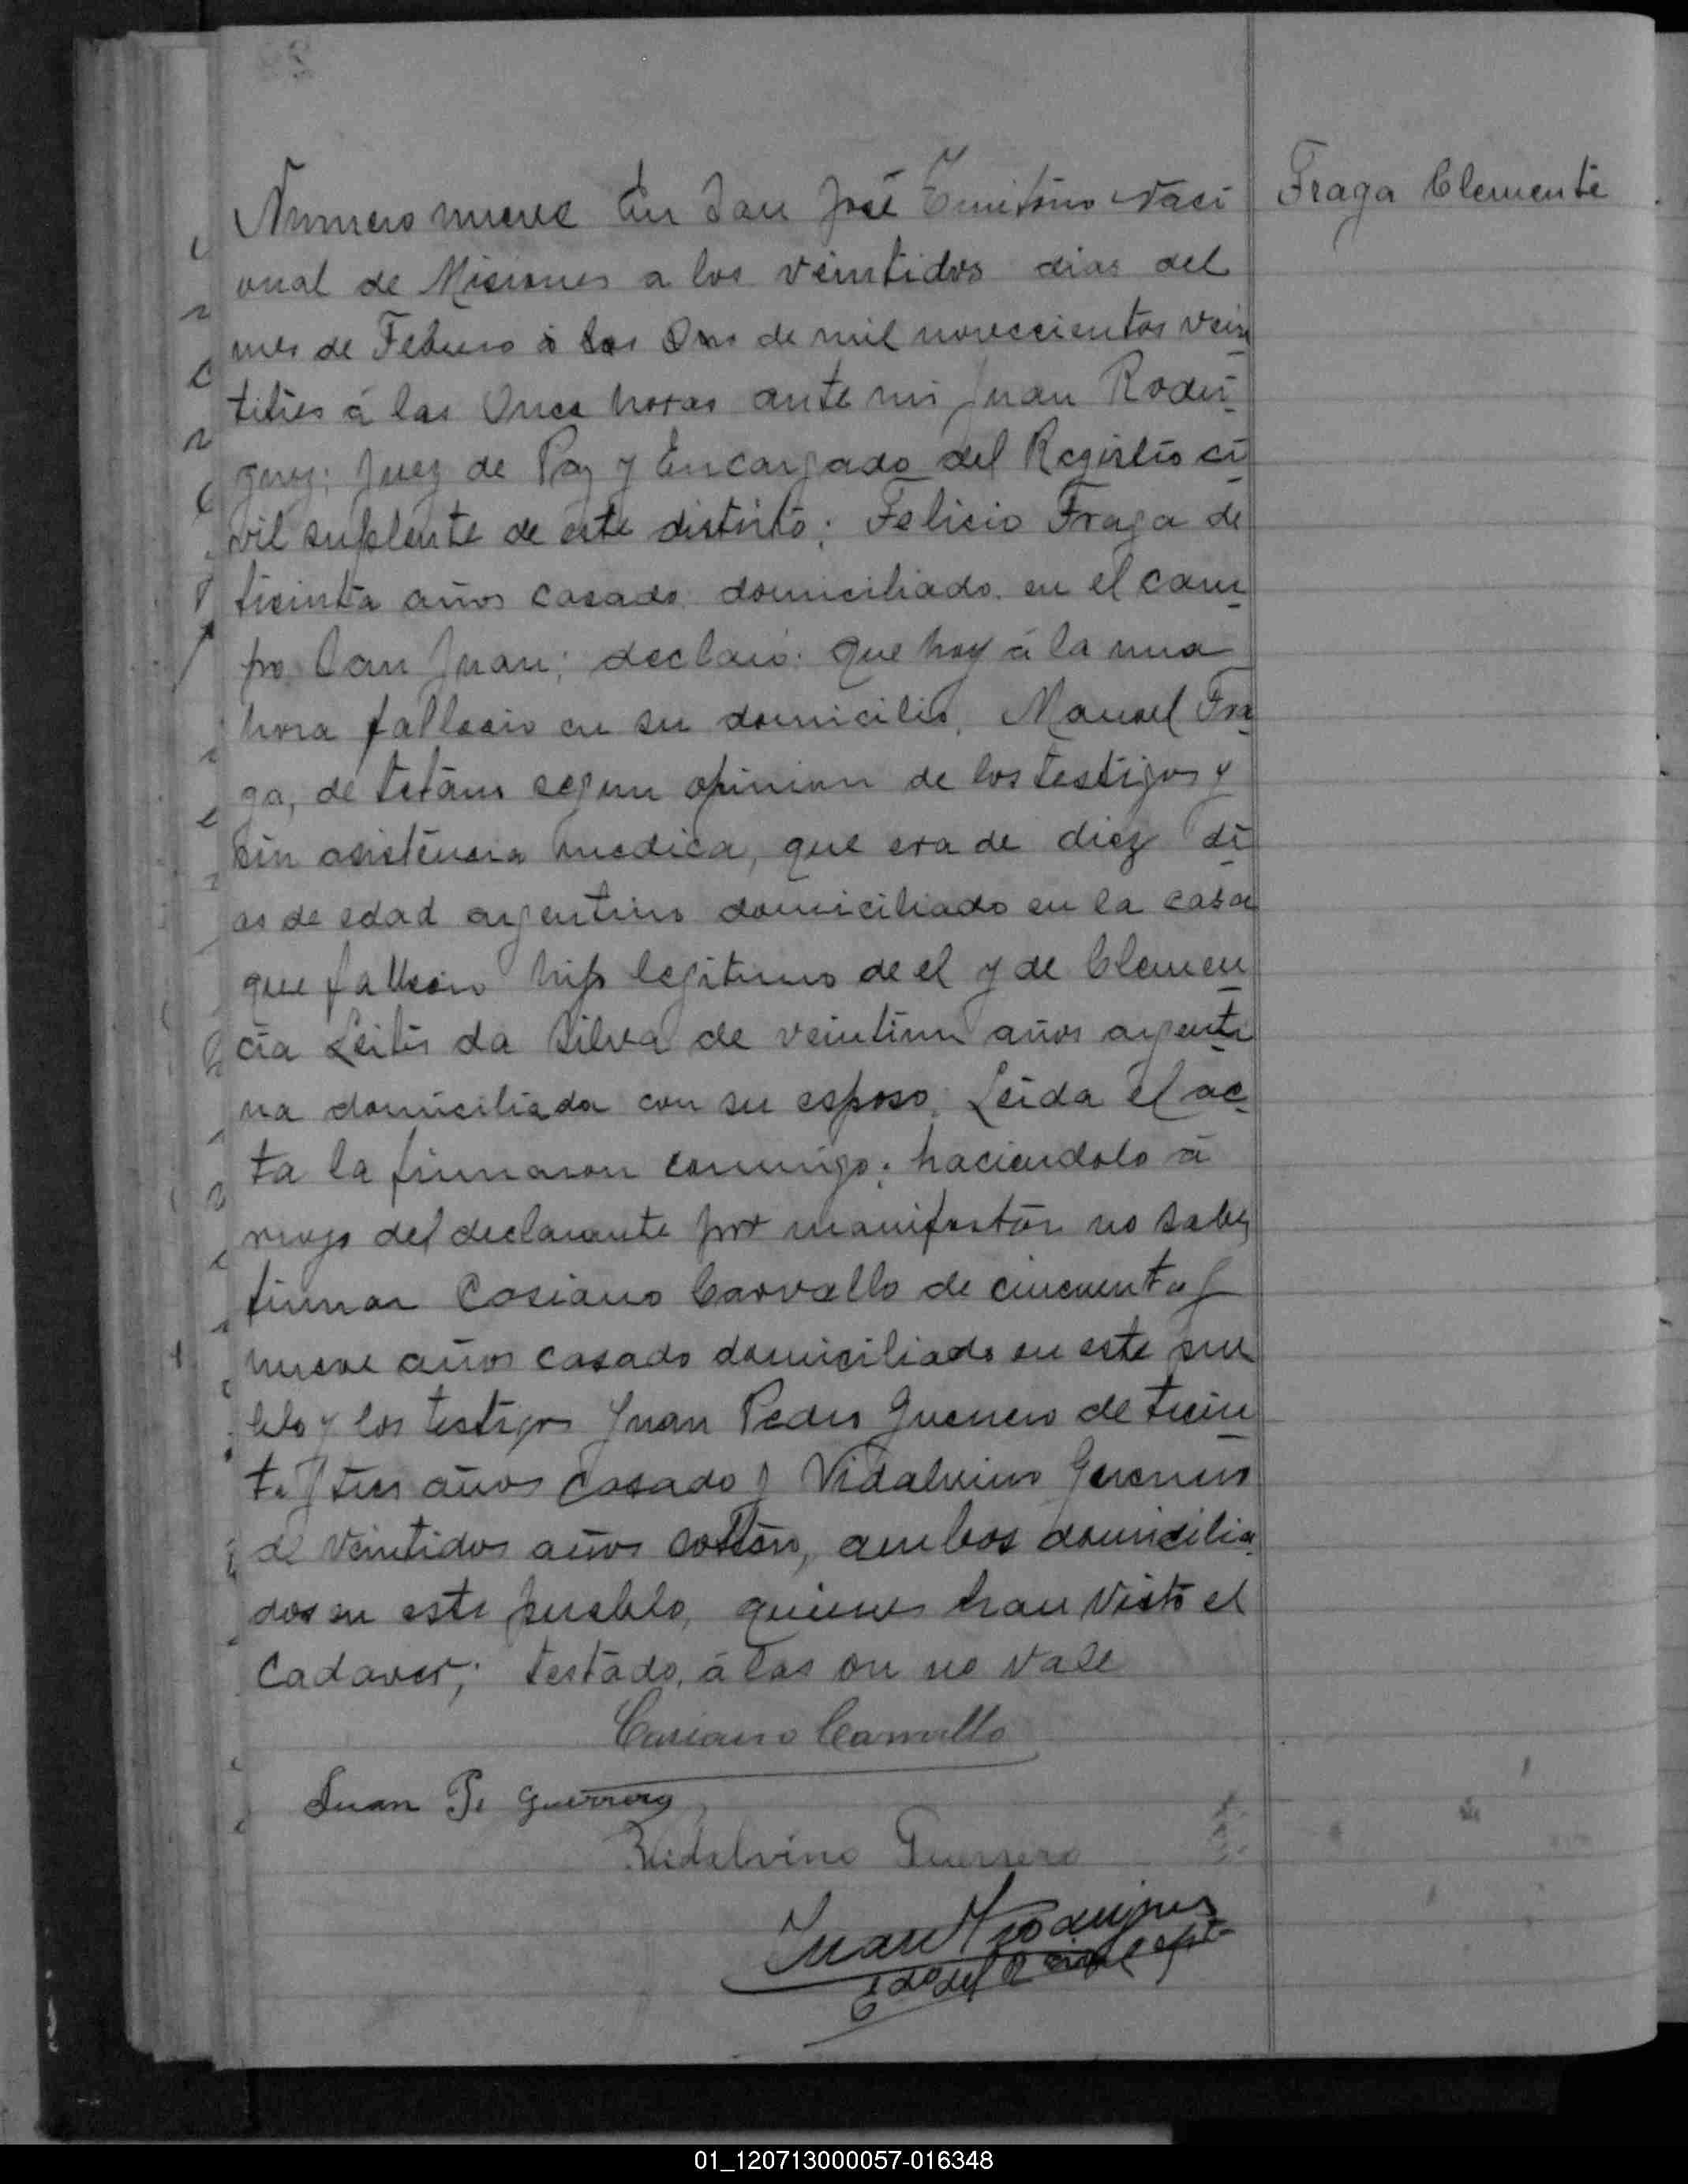 Numero nueve En San José Territorio Naci
onal de Misiones a los veintidos dias del
mes de Febrero á las On de mil novecientos vein
titres á las Once horas ante mi Juan Rodri
guez; Juez de Paz y Encargado del Registro ci
vil suplente de este distrito; Felicio Fraga de
treinta años casado domiciliado en el cam
po San Juan; declaró: que hoy á la una
hora fallecio en su domicilio, Manuel Fra
ga, de tetano segun opinion de los testigos y
sin asistencia medica, que era de diez di
as de edad argentino domiciliado en la casa
que fallecio hijo legitimo de el y de Clemen
cia Leites da Silva de veintiun años argenti
na domiciliada con su esposo. Leida el ac
ta la firmaron conmigo; haciendolo á
ruego del declarante por manifestar no saber
firmar Casiano Carvallo de cincuenta y
nueve años casado domiciliado en este pue
blo y los testigos Juan Pedro Guerrero de trein
ta y tres años casado y Vidalvino Guerrero
de veintidos años soltero, ambos domicilia
dos en este pueblo, quienes han visto el
cadaver; testado, á las on no vale
Casiano Carvallo
Juan P. Guerrero
Vidalvino Guerrero
Juan Rodriguez
Edo del R civil
Fraga Clemente
01_120713000057-016348